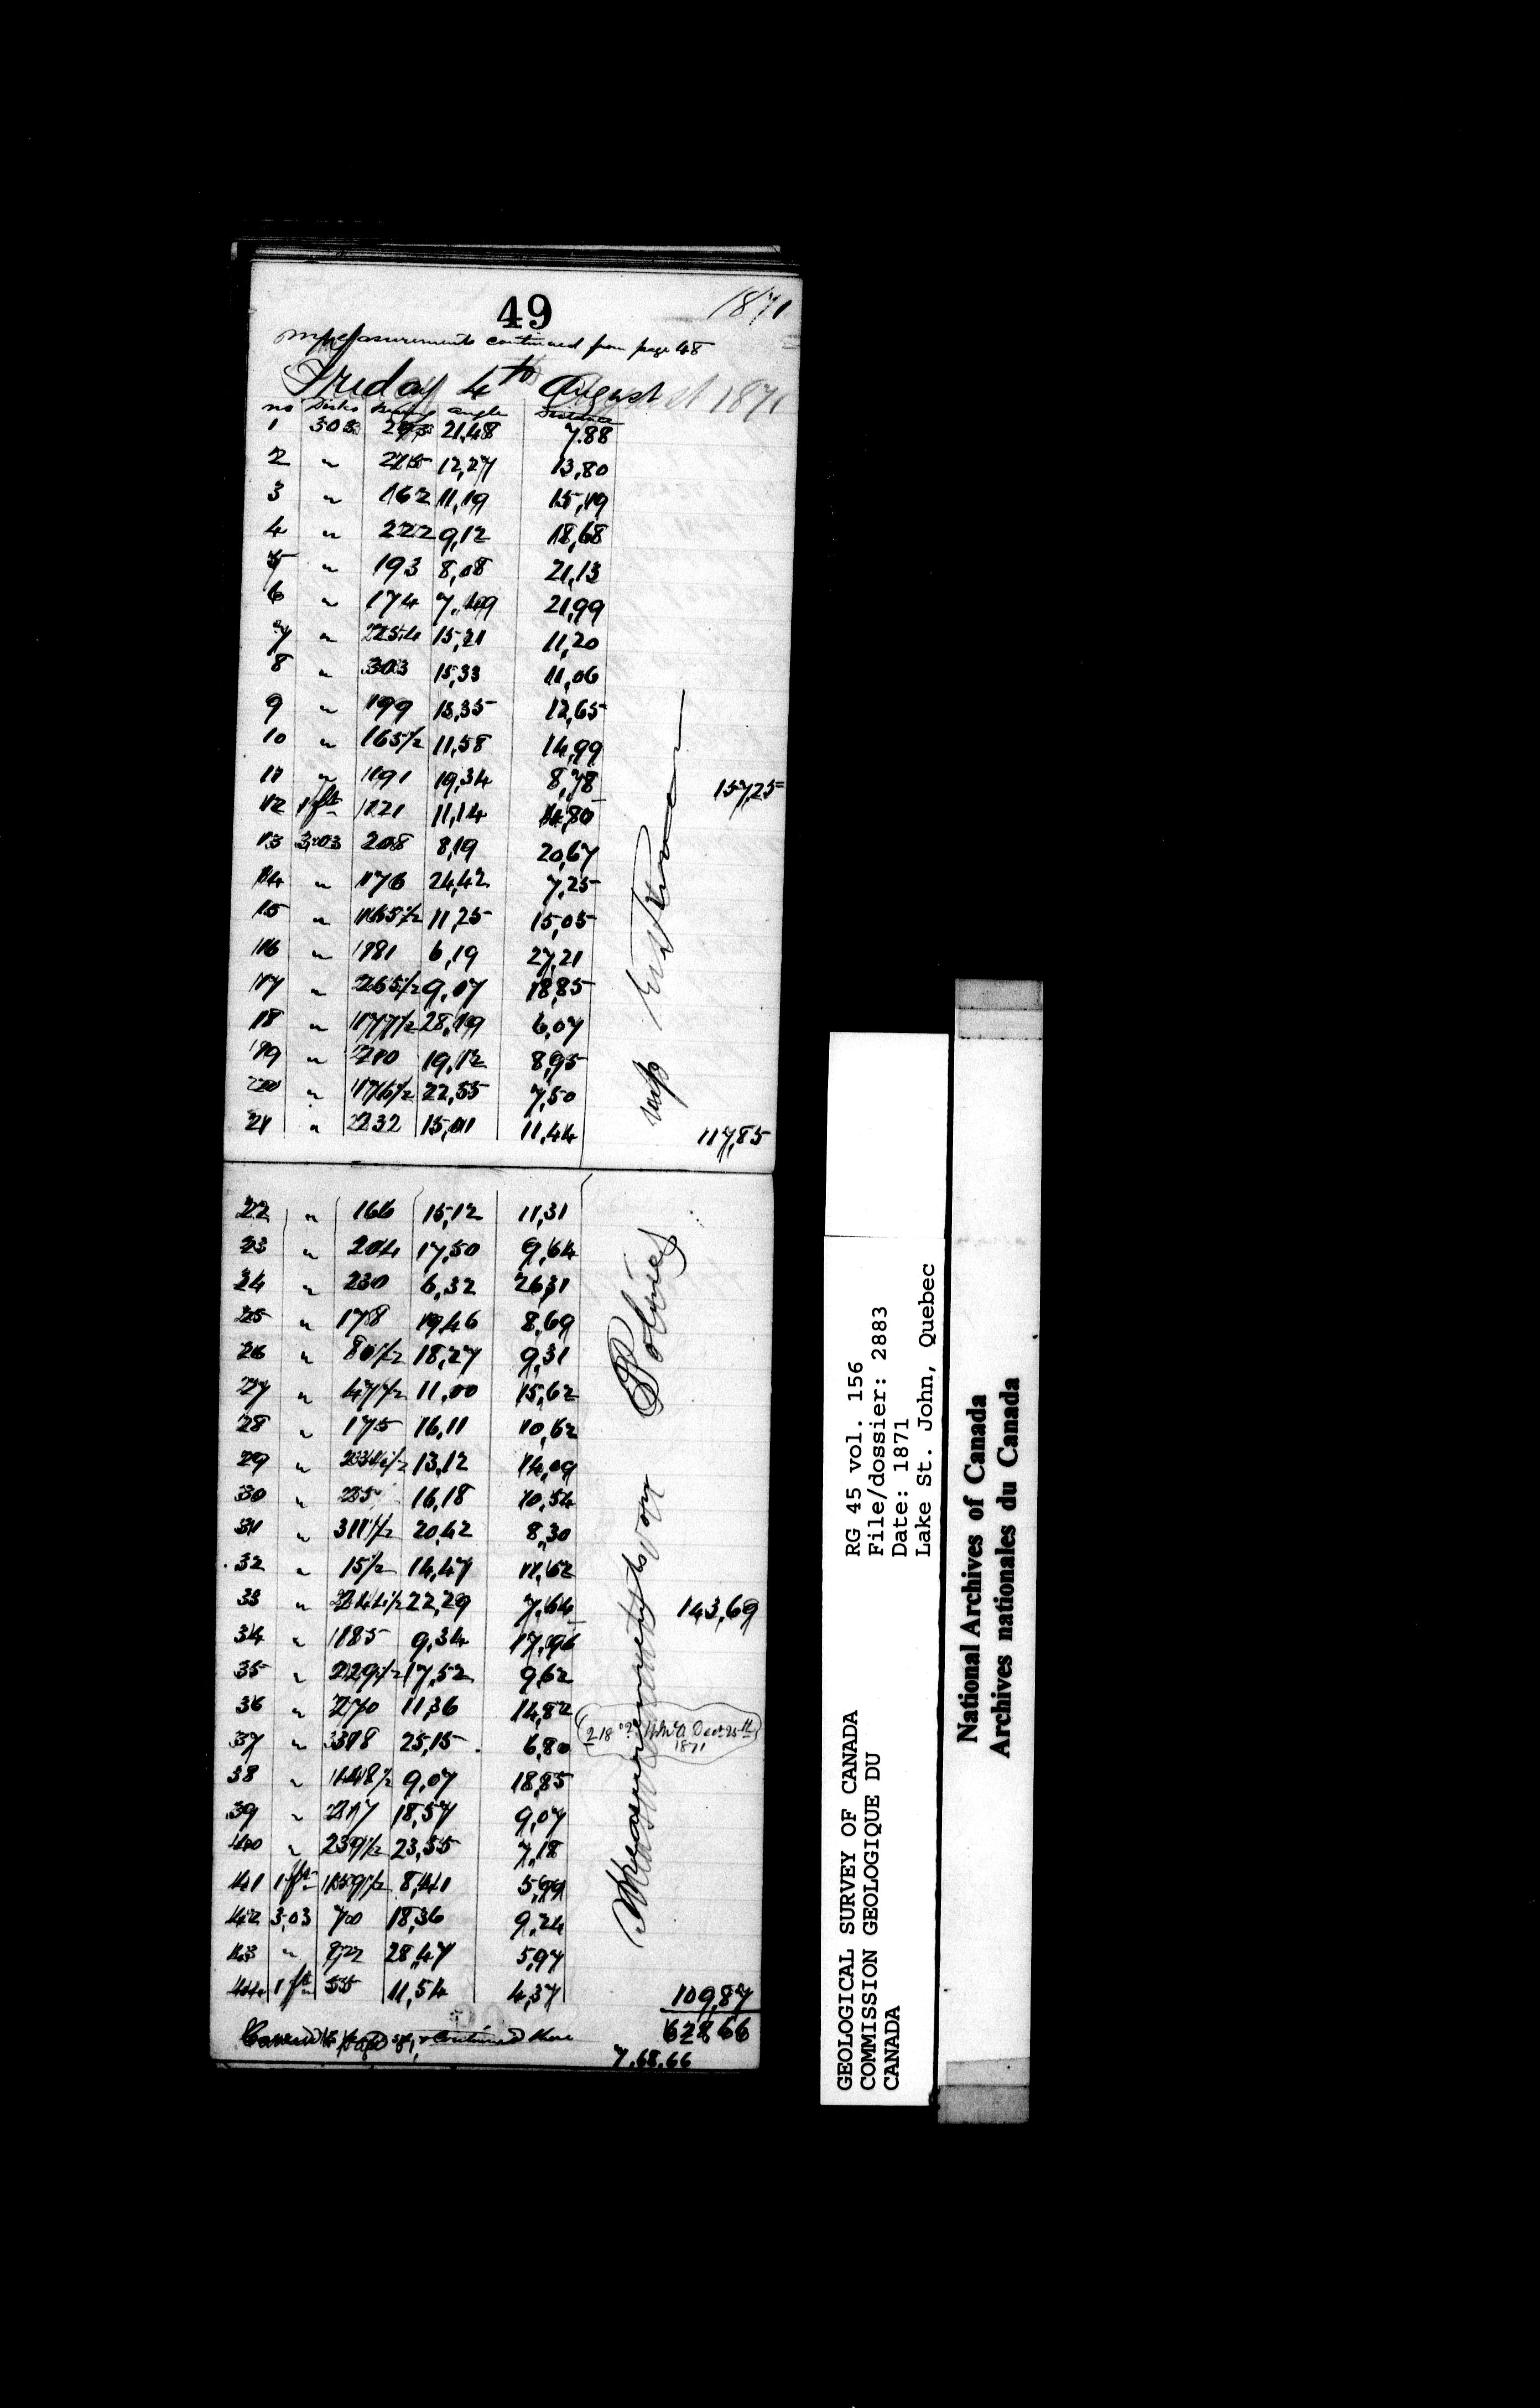 49
1871
Measurements continued from page 48
Friday 4th August 1871
no Disks Bearing angle Distance
1 303 293 21,48 7.88
2 " 215 12,27 13,80
3 " 162 11,19 15,19
4 " 222 9,12 18,68
5 " 193 8,08 21,13
6 " 174 7,49 21,99
7 " 15,21 11,20
8 " 303 15,33 11,06
9 " 199 13,35 12,65
10 " 165½ 11,58 14,99
11 " 191 19,34 8,78 157,25
12 1 ft 121 11,14
13 3,03 208 8,19 20,67
14 " 176 24,42 7,25
15 " 165½ 11,25 15,05
16 " 181 6,19 27,21
17 " 265½ 9,07 18,85
18 " 177½ 28,19 6,07
19 " 210 19,12 8,95
20 " 176½ 22,55 7,50
21 " 232 15,01 11,44 117,85
22 " 166 15,12 11,31
23 " 204 17,50 9,64
24 " 230 6,32 26,31
25 " 178 19,46 8,69
26 " 80½ 18,27 9,31
27 " 47½ 11,00 15,62
28 " 175 16,11 10,62
29 " 234½ 13,12 14,09
30 " 16,18 10,54
31 " 311½ 20,42 8,30
32 " 15½ 14,47 11,62
33 " 244½ 22,29 7,64 143,69
34 " 185 9,34 17,96
35 " 229½ 17,52 9,62
36 " 270 11,36 14,82
37 " 318 25,15 6,80
38 " 148½ 9,07 18,85
39 " 217 18,57 9,07
40 " 239½ 23,55 7,18
41 1 ft 159½ 8,41 5,99
42 3,03 70 18,36 9,24
43 " 28,47 5,97
44 1 ft 55 11,54 4,37 109,87
628,66
7,68,66
Measurements on
Dec 25th
1871
RG 45 vol. 156
File/dossier: 2883
Date: 1871
Lake St. John, Quebec
GEOLOGICAL SURVEY OF CANADA
COMMISSION GEOLOGIQUE DU
CANADA
National Archives of Canada
Archives nationales du Canada